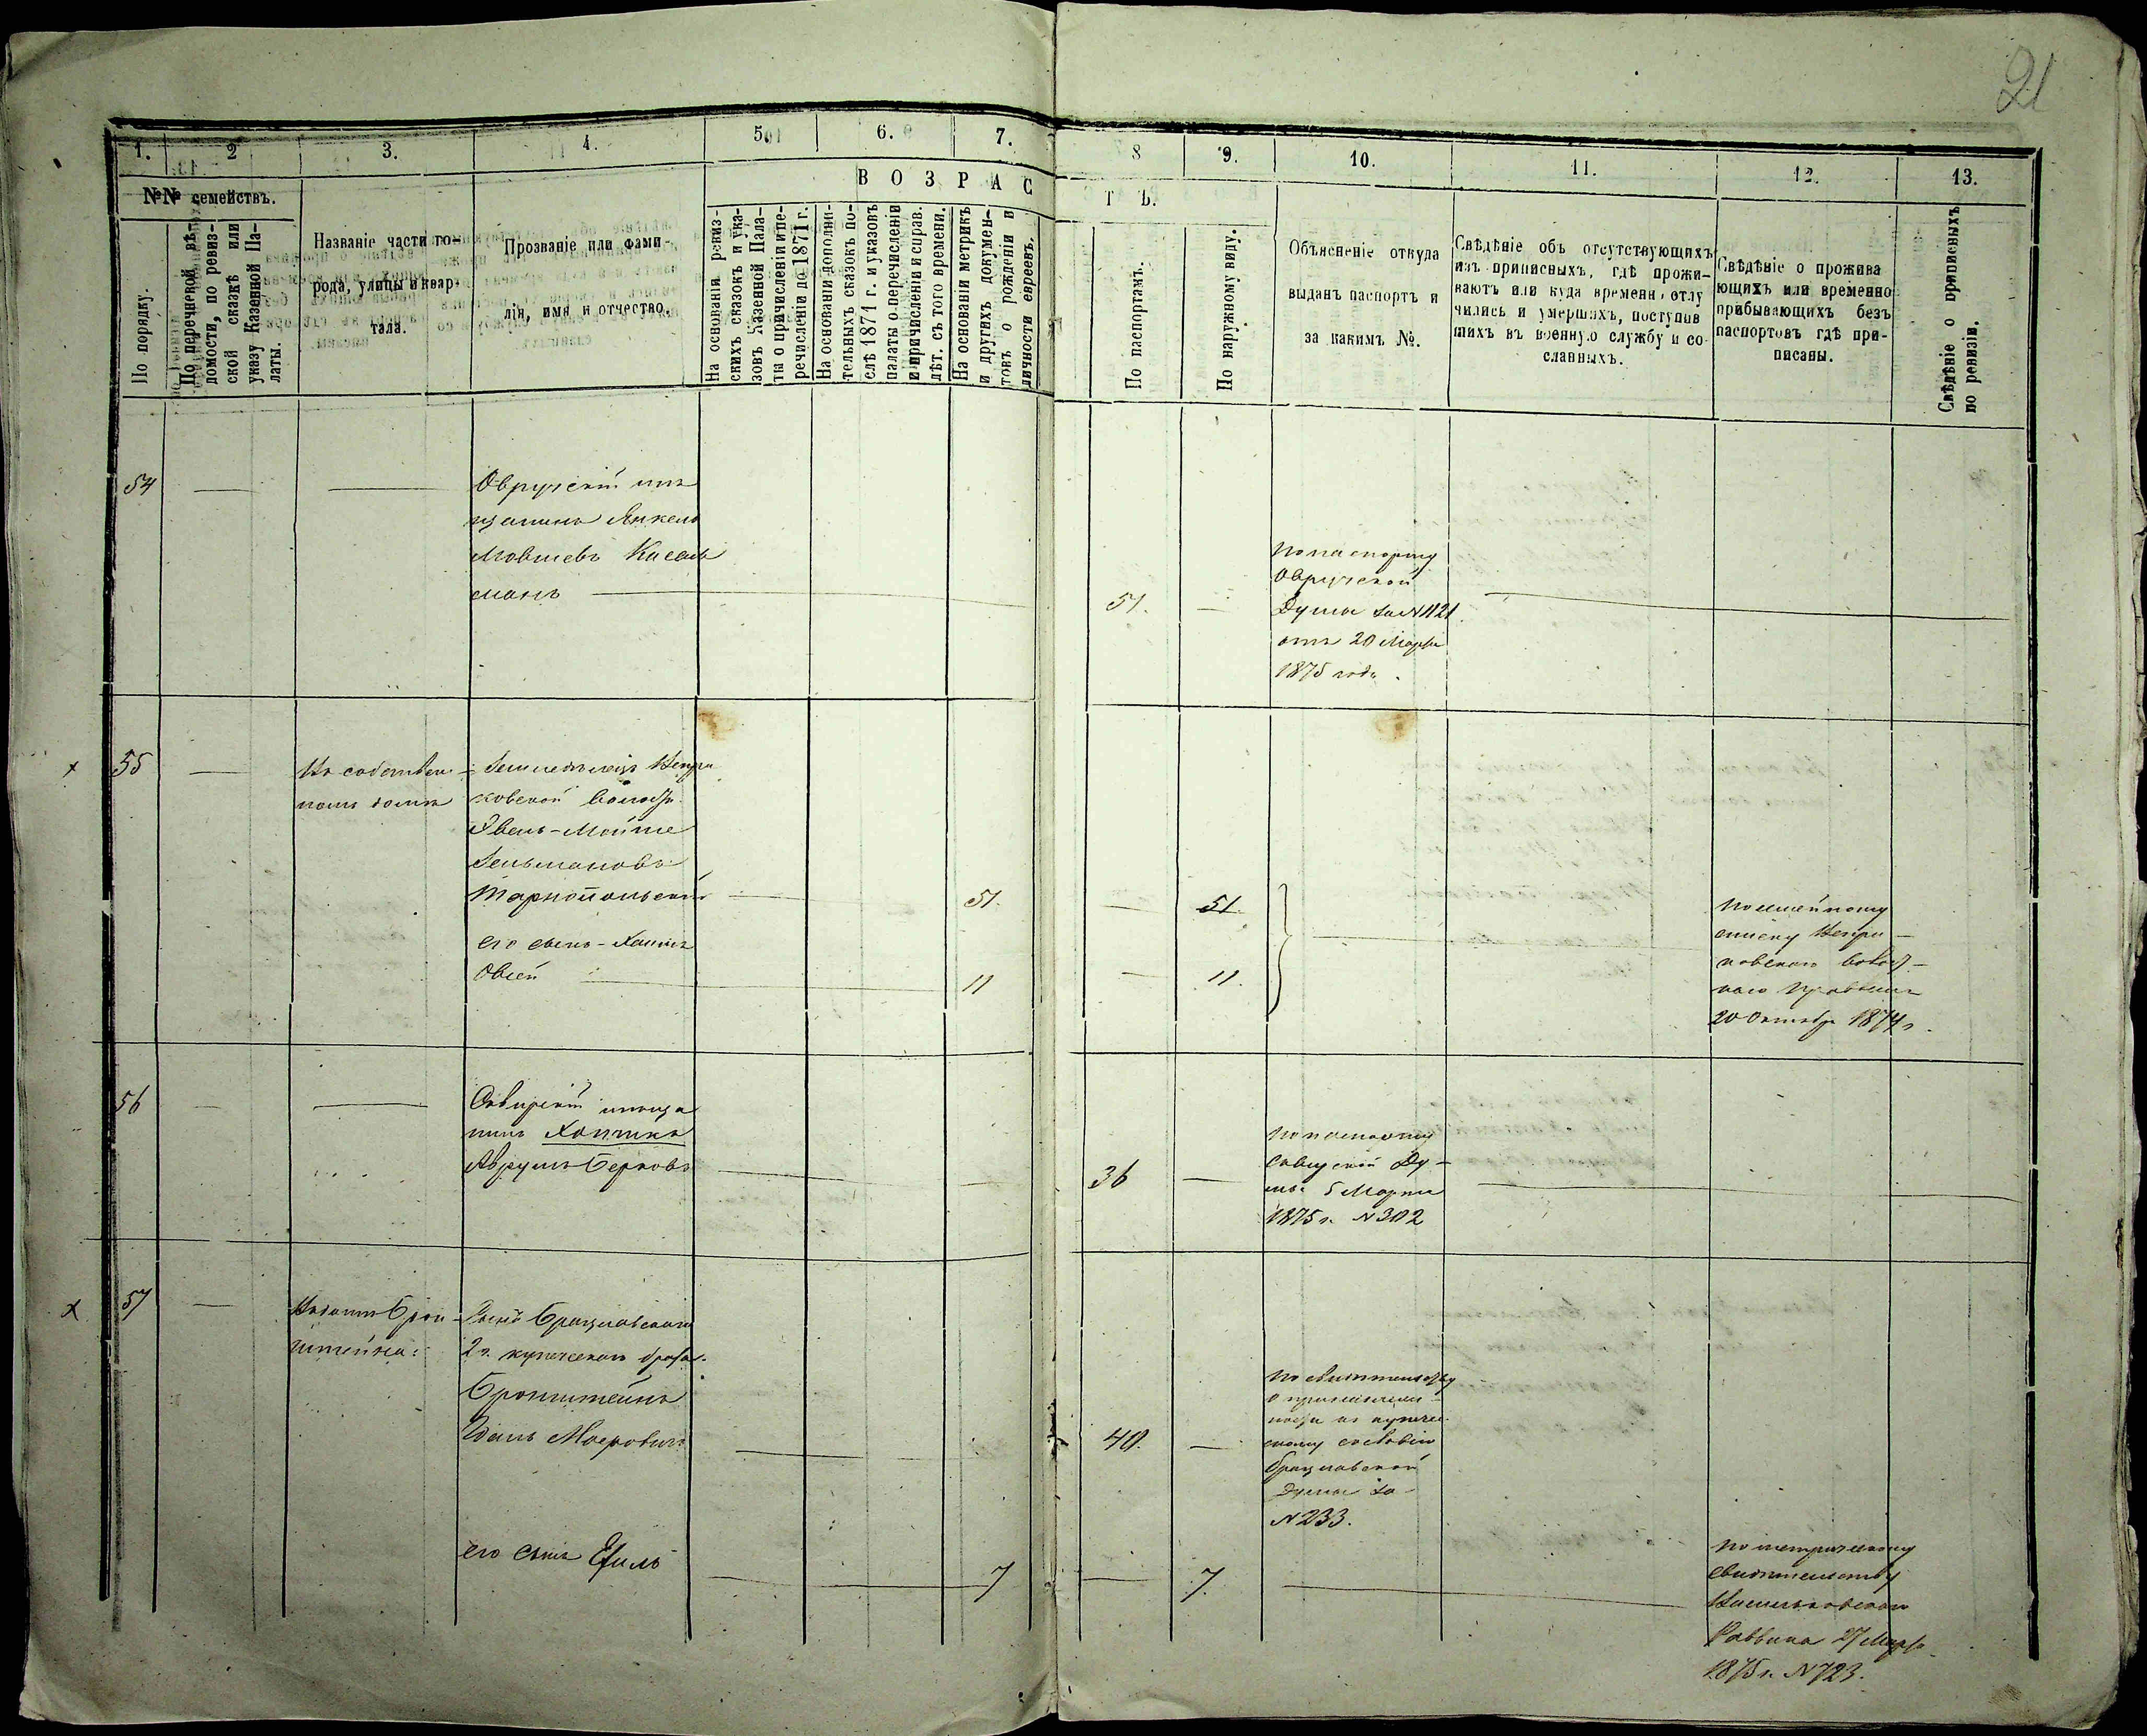 21
1.
2
3.
4.
5.
6.
7.
8
9.
10.
11.
12.
13.
№№ семействъ.
По порядку.
По перечневой вѣ-
домости, по ревиз-
ской сказкѣ или
указу Казенной Па-
латы.
Названіе части го-
рода, улицы и квар-
тала.
Прозваніе или фами-
лія, имя и отчество.
ВОЗРАС
ТЪ.
На основаніи ревиз-
скихъ сказокъ и ука-
зовъ Казенной Пала-
ты о причисленіи и пе-
речисленіи до 1871 г.
На основаніи дополни-
тельныхъ сказокъ по-
слѣ 1871 г. и указовъ
палаты о перечисленіи
и причисленіи и справ.
лѣт. съ того времени.
На основаніи метрикъ
и другихъ докумен-
товъ о рожденіи и
личности евреевъ.
По паспортамъ.
По наружному виду.
Объясненіе откуда
выданъ паспортъ и
за какимъ №.
Свѣдѣніе объ отсутствующихъ
изъ приписныхъ, гдѣ прожи-
ваютъ или куда временн. отлу
чились и умершихъ, поступив
шихъ въ военную службу и со
сланныхъ.
Свѣдѣніе о прожива
ющихъ или временно
прибывающихъ безъ
паспортовъ гдѣ при-
писаны.
Свѣдѣніе о приписныхъ
по ревизіи.
54
Овручскій мѣ
щанинъ Янкель
Мовшевъ Кисель
манъ
51.
По паспорту
Овручской
Думы за №1121
отъ 20 Марта
1875 года.
х 55
Въ собствен-
номъ домѣ
Земледѣлецъ
ковской волости
Эвель-Мойше
Зельмановъ
Тарнопольскій
51.
51.
По семейному
списку
20 Октября 1874 г.
его сынъ - Хаимъ
Овсей
11
11.
56
Сквирскій мѣща
нинъ Хаптикъ
Аврумъ Берковъ
36
По паспорту
Сквирской Ду-
мы 5 Марта
1875 г. №302
х 57
Въ домѣ Брон-
штейна
Брацлавскаго
2 г. купеческаго брата
Бронштейнъ
Мееровичъ
40.
По свидѣтельству
о принадлеж-
ности къ купече-
скому сословію
Брацлавской
Думы за
№233.
его сынъ Ехиль
7
7.
По метрическому
свидѣтельству
Раввина 27 Марта
1875 г. №723.